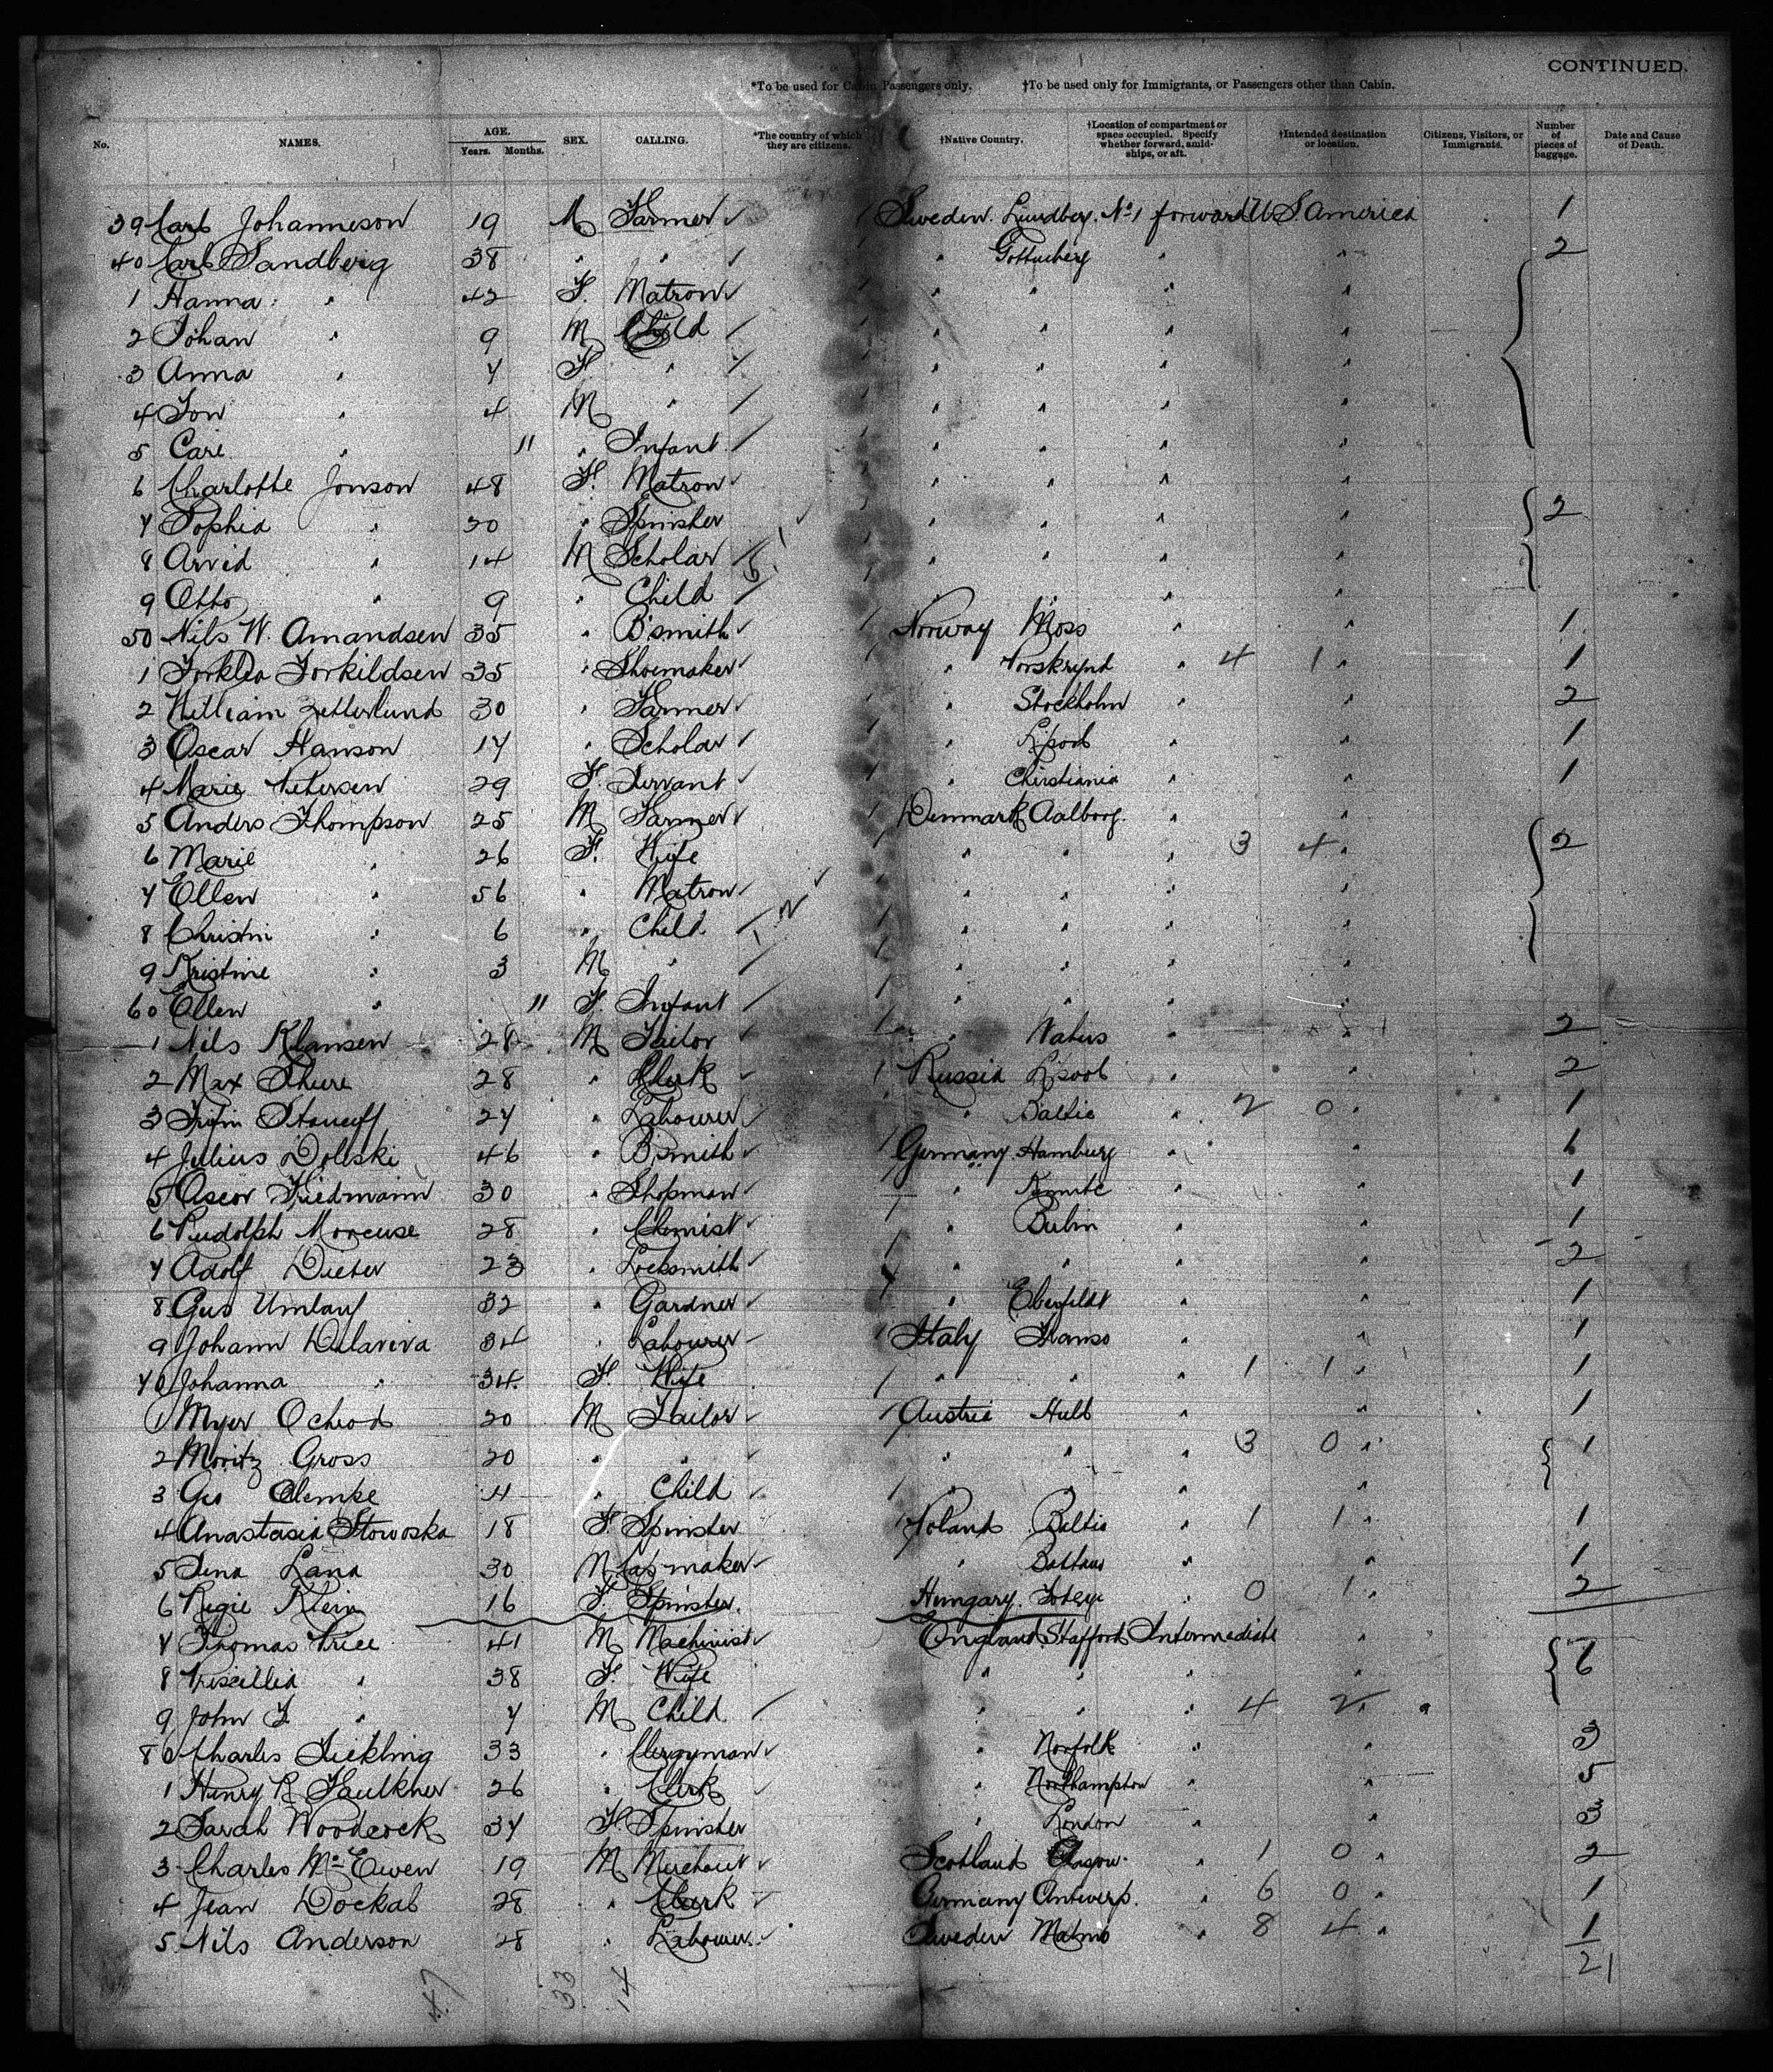 CONTINUED.
*To be used for Cabin Passengers only. †To be used only for Immigrants, or Passengers other than Cabin.
No. NAMES. AGE. Years. Months. SEX. CALLING. *The country of which they are citizens. †Native Country. †Location of compartment or space occupied. Specify whether forward, amidships, or aft. †Intended destination or location. Citizens, Visitors, or Immigrants. Number of pieces of baggage. Date and Cause of Death.
39 Carl Johanneson 19 M Farmer Sweden. No 1 forward U S America 1
40 Carl Sandberg 38 " " " " " 2
1 Hanna " 42 F. Matron " " " "
2 Johan " 9 M Child " " " "
3 Anna " 7 F " " " " "
4 Jon " 4 M " " " " "
5 Carl " 11 " Infant " " " "
6 Charlotte Jonson 48 F. Matron " " " "
7 Sophia " 20 " Spinster " " " " 2
8 Arvid " 14 M Scholar " " " "
9 Otto " 9 " Child " " "
50 Nils W. Amandsen 35 " B'smith Norway Moss " " 1
1 Forkildsen 35 " Shoemaker " " 4 1 " 1
2 William Zetterlund 30 " Farmer " Stockholm " 2
3 Oscar Hanson 17 " Scholar " L'pool " " 1
4 Marie Petersen 29 F. Servant " Christiania " " 1
5 Anders Thompson 25 M Farmer Denmark Aalborg. " "
6 Marie " 26 F. Wife " " " 3 4 " 2
7 Ellen " 56 " Matron " " " "
8 Christin " 6 " Child " " " "
9 Kristine " 3 M " " " " "
60 Ellen " 11 F Infant " " " "
1 Nils Klansen 28 M Tailor " " " 2
2 Max 28 " Clerk Russia L'pool " " 2
3 27 " Labourer " Baltic " 2 0 " 1
4 Julius Dolski 46 " B'smith Germany Hamburg " " 6
5 Oscar Friedmann 30 " Shopman " " " 1
6 Rudolph Morcuse 28 " Chemist " Berlin " " 1
7 Adolf Dieter 23 " Locksmith " " " 2
8 Gus Umlauf 32 " Gardner " Eberfeldt " " 1
9 Johann Delaviva 34 " Labourer Italy " " 1
70 Johanna " 34 F. Wife " " 1 1 " 1
1 Myer 20 M Tailor Austria Hull " " 1
2 Moritz Gross 20 " " " " " 3 0 " 1
3 Geo 11 " Child " " " "
4 Anastasia Stowoska 18 F. Spinster Poland Baltic " 1 1 " 1
5 Lana 30 M Cap-maker " " " 1
6 Regie Klein 16 F. Spinster. Hungary " 0 1 " 2
7 Thomas Price 41 M Machinist England Stafford Intermediate "
8 Priscillia " 38 F. Wife " " " " 6
9 John T. " 7 M Child " " " 4 2 "
80 Charles Tickling 33 " Clergyman " Norfolk " " 3
1 Henry R Faulkner 26 " Clerk " Northampton " " 5
2 Sarah Woodcock 37 F. Spinster " London " " 3
3 Charles McEwen 19 M Merchant Scotland Glasgow " 1 0 " 2
4 Jean Dockal 28 " Clerk Germany Antwerp. " 6 0 " 1
5 Nils Anderson 28 " Labourer. Sweden Malmo " 8 4 " 1
21
47 33 14